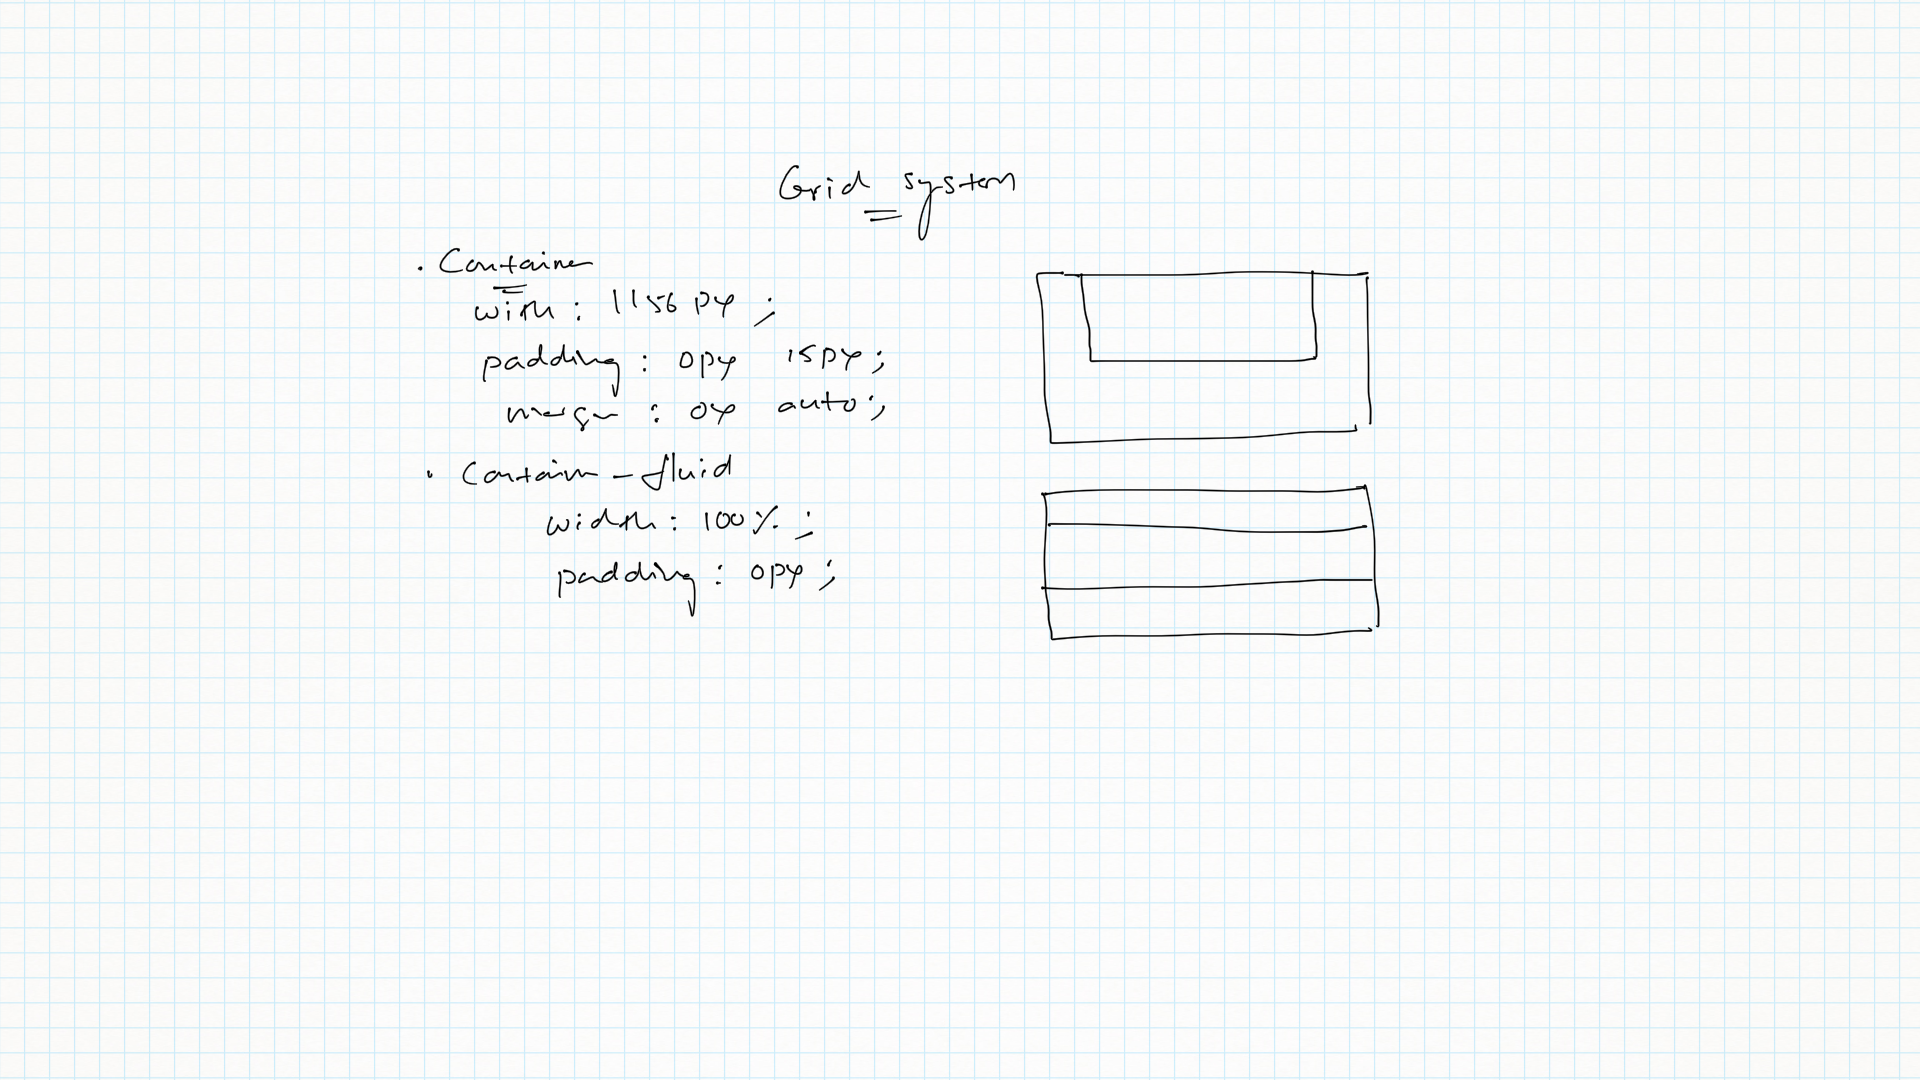 Grid system
. Container
with : 1156 px ;
padding : 0px 15px ;
margin : 0x auto ;
. Contain - fluid
width : 100% ;
padding : 0px ;